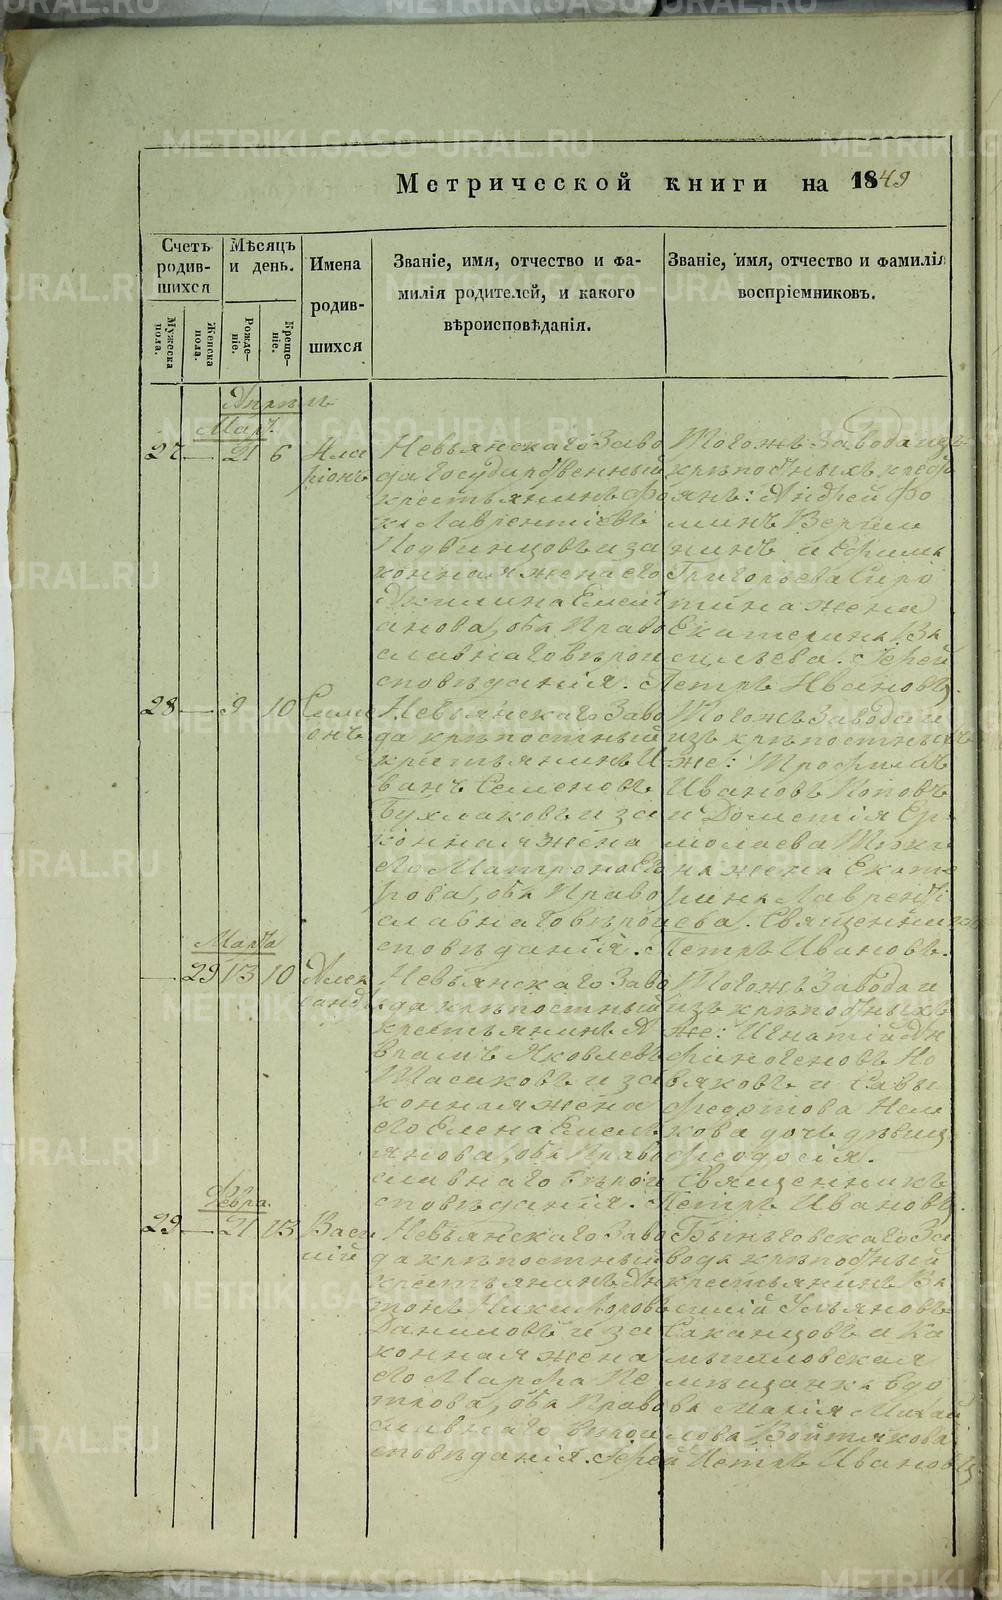 Метрической книги на 1849
Счетъ родив-шихся
Мѣсяцъ и день.
Имена родив-шихся
Званіе, имя, отчество и фа-
милія родителей, и какого
вѣроисповѣданія.
Званіе, имя, отчество и фамилія
воспріемниковъ.
Мужеска пола.
Женска пола.
Рожде-ніе.
Креще-ніе.
Март.
27 — 21 6
Ила
ріонъ
Невьянскаго Заво
да государственный
крестьянинъ Фо
ка Лаврентіевъ
Подвинцовъ и за
конная жена его
Акилина Емель
анова, оба Право
славнаго вѣрои
сповѣданія.
Тогожъ Завода изъ
крѣпостныхъ кресть
янъ: Андрей Фо
минъ
и Ефима
Григорьева
жена
Екатерина Ва
сильева. Іерей
Петръ Ивановъ.
28 — 9 10
Сими
онъ
Невьянскаго Заво
да крѣпостный
крестьянинъ И
ванъ Семеновъ
Бухлаковъ и за
конная жена
его Матрона Его
рова, оба Право
славнаго вѣрои
сповѣданія.
Тогожъ Завода и
изъ крѣпостныхъ
же: Трофимъ
Ивановъ Поповъ
и Дометія Ер
молаева
жена Екате
рина Лаврентi
ева. Священникъ
Петръ Ивановъ.
Марта
— 29 13 10
Алек
санд
Невьянскаго Заво
да крѣпостный
крестьянинъ А
врамъ Яковлевъ
и за
конная жена
его Елена Емель
янова, оба Право
славнаго вѣрои
сповѣданія.
Тогожъ Завода и
изъ крѣпостныхъ
же: Игнатій Ан
финогеновъ По
ляковъ и Савы
Федотова
дочь дѣвица
Феодосія.
Священникъ
Петръ Ивановъ.
Февра.
29 — 21 13
Васи
лій
Невьянскаго Заво
да крѣпостный
крестьянинъ Ан
тонъ Никифоровъ
Даниловъ и за
конная жена
его Марфа Пе
трова, оба Право
славнаго вѣрои
сповѣданія.
Быньговскаго За
вода крѣпостный
крестьянинъ Ва
силій Ульяновъ
Саканцовъ и Ка
мышловская
мѣщанка Вдо
ва Марія Михай
лова
Іерей Петръ Ивановъ
METRIKI.GASO-URAL.RU